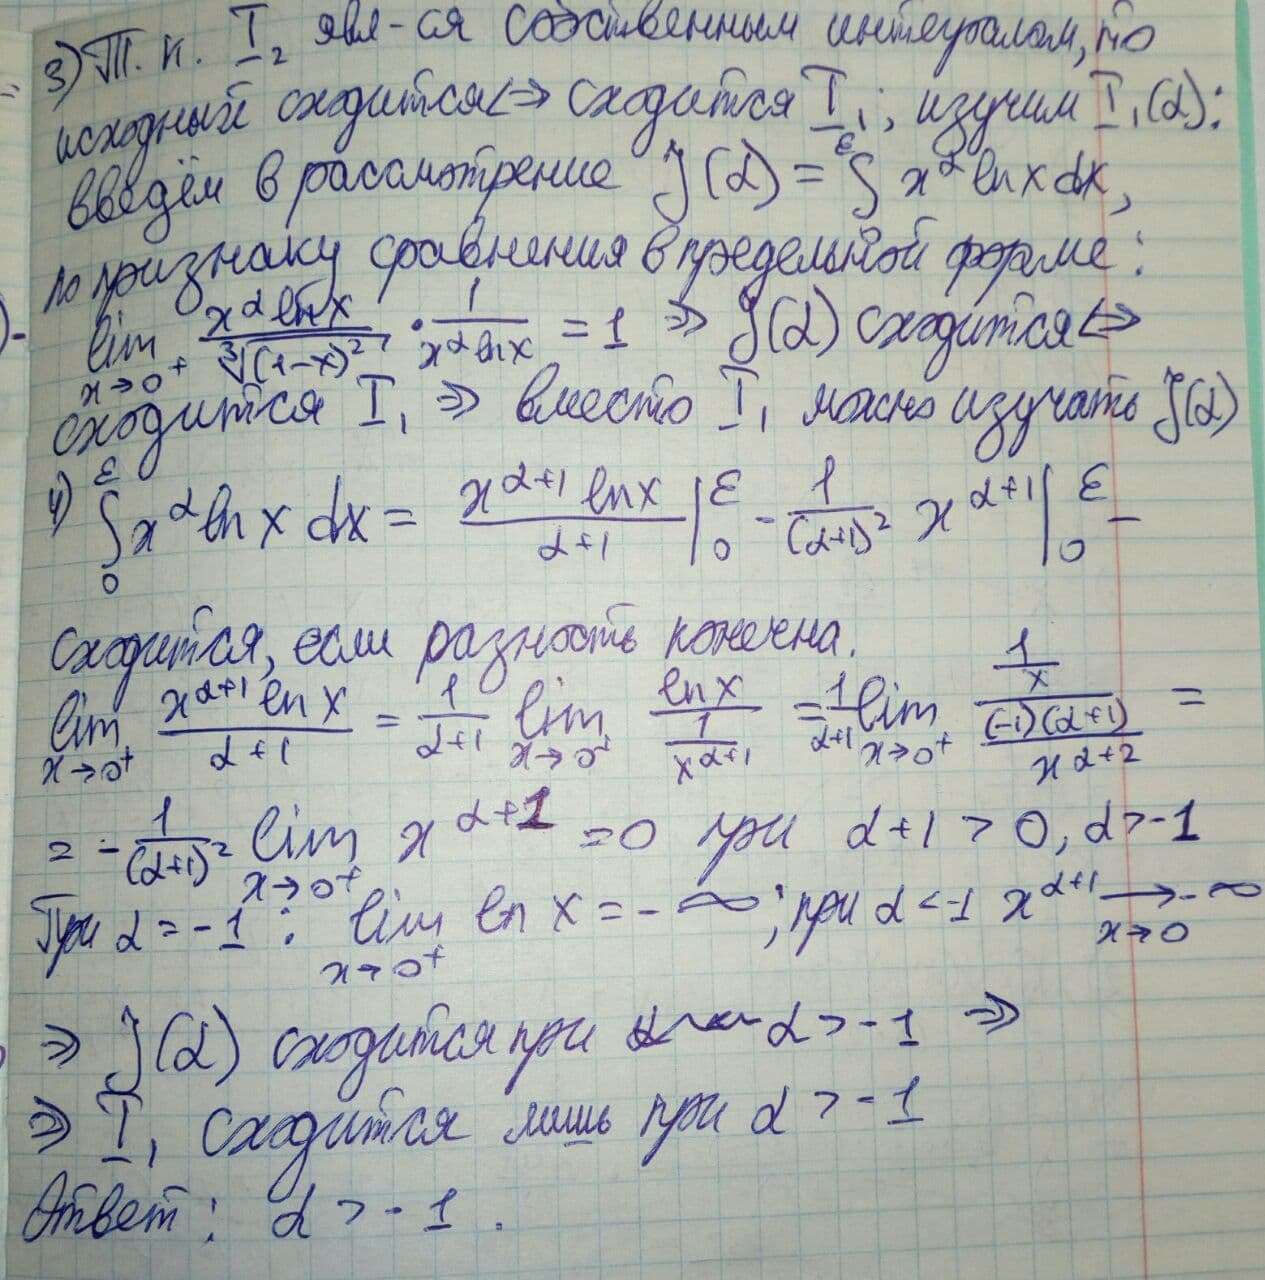 3) Т. к. I₂ явл-ся собственным интегралом, то
исходный сходится ⇔ сходится I₁; изучим I₁(α):
введём в рассмотрение J(α) = ∫^ε x^α ln x dx,
по признаку сравнения в предельной форме:
lim_{x→0⁺} (x^α ln x)/(∛((1-x)²)) · 1/(x^α ln x) = 1 ⇒ J(α) сходится ⇔
сходится I₁ ⇒ вместо I₁ можно изучать J(α)
4) ∫₀^ε x^α ln x dx = (x^{α+1} ln x)/(α+1) |₀^ε - 1/(α+1)² x^{α+1} |₀^ε –
сходится, если разность конечна.
lim_{x→0⁺} (x^{α+1} ln x)/(α+1) = 1/(α+1) lim_{x→0⁺} (ln x)/(1/x^{α+1}) = 1/(α+1) lim_{x→0⁺} (1/x)/((-1)(α+1)/x^{α+2}) =
= - 1/(α+1)² lim_{x→0⁺} x^{α+1} = 0 при α+1 > 0, α > -1
При α = -1 : lim_{x→0⁺} ln x = - ∞; при α < -1 x^{α+1} →_{x→0} - ∞
⇒ J(α) сходится при α > -1 ⇒
⇒ I₁ сходится лишь при α > -1
Ответ: α > -1.